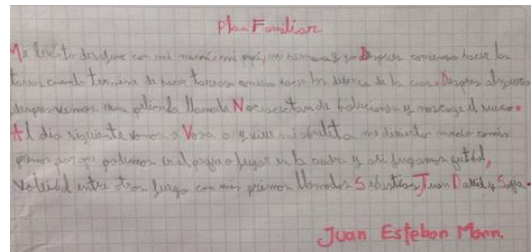 Plan Familiar
Me levanto desayuno con mi mamá, mi papá, mi hermana y yo Despues comienzo hacer las
tareas cuando termino de hacer tareas comienzo hacer los deberes de la casa. Despues
despues vemos una pelicula llamada No
Al dia siguiente vamos a Vosa a y visi mi abuelita me divierto mucho con mis
primos por que podemos ir al parque a jugar en la cuadra y alli jugamos futbol,
voleibol entre otros juegos con mis primos llamados Sebastian Juan David y Sofia.
Juan Esteban Mann.